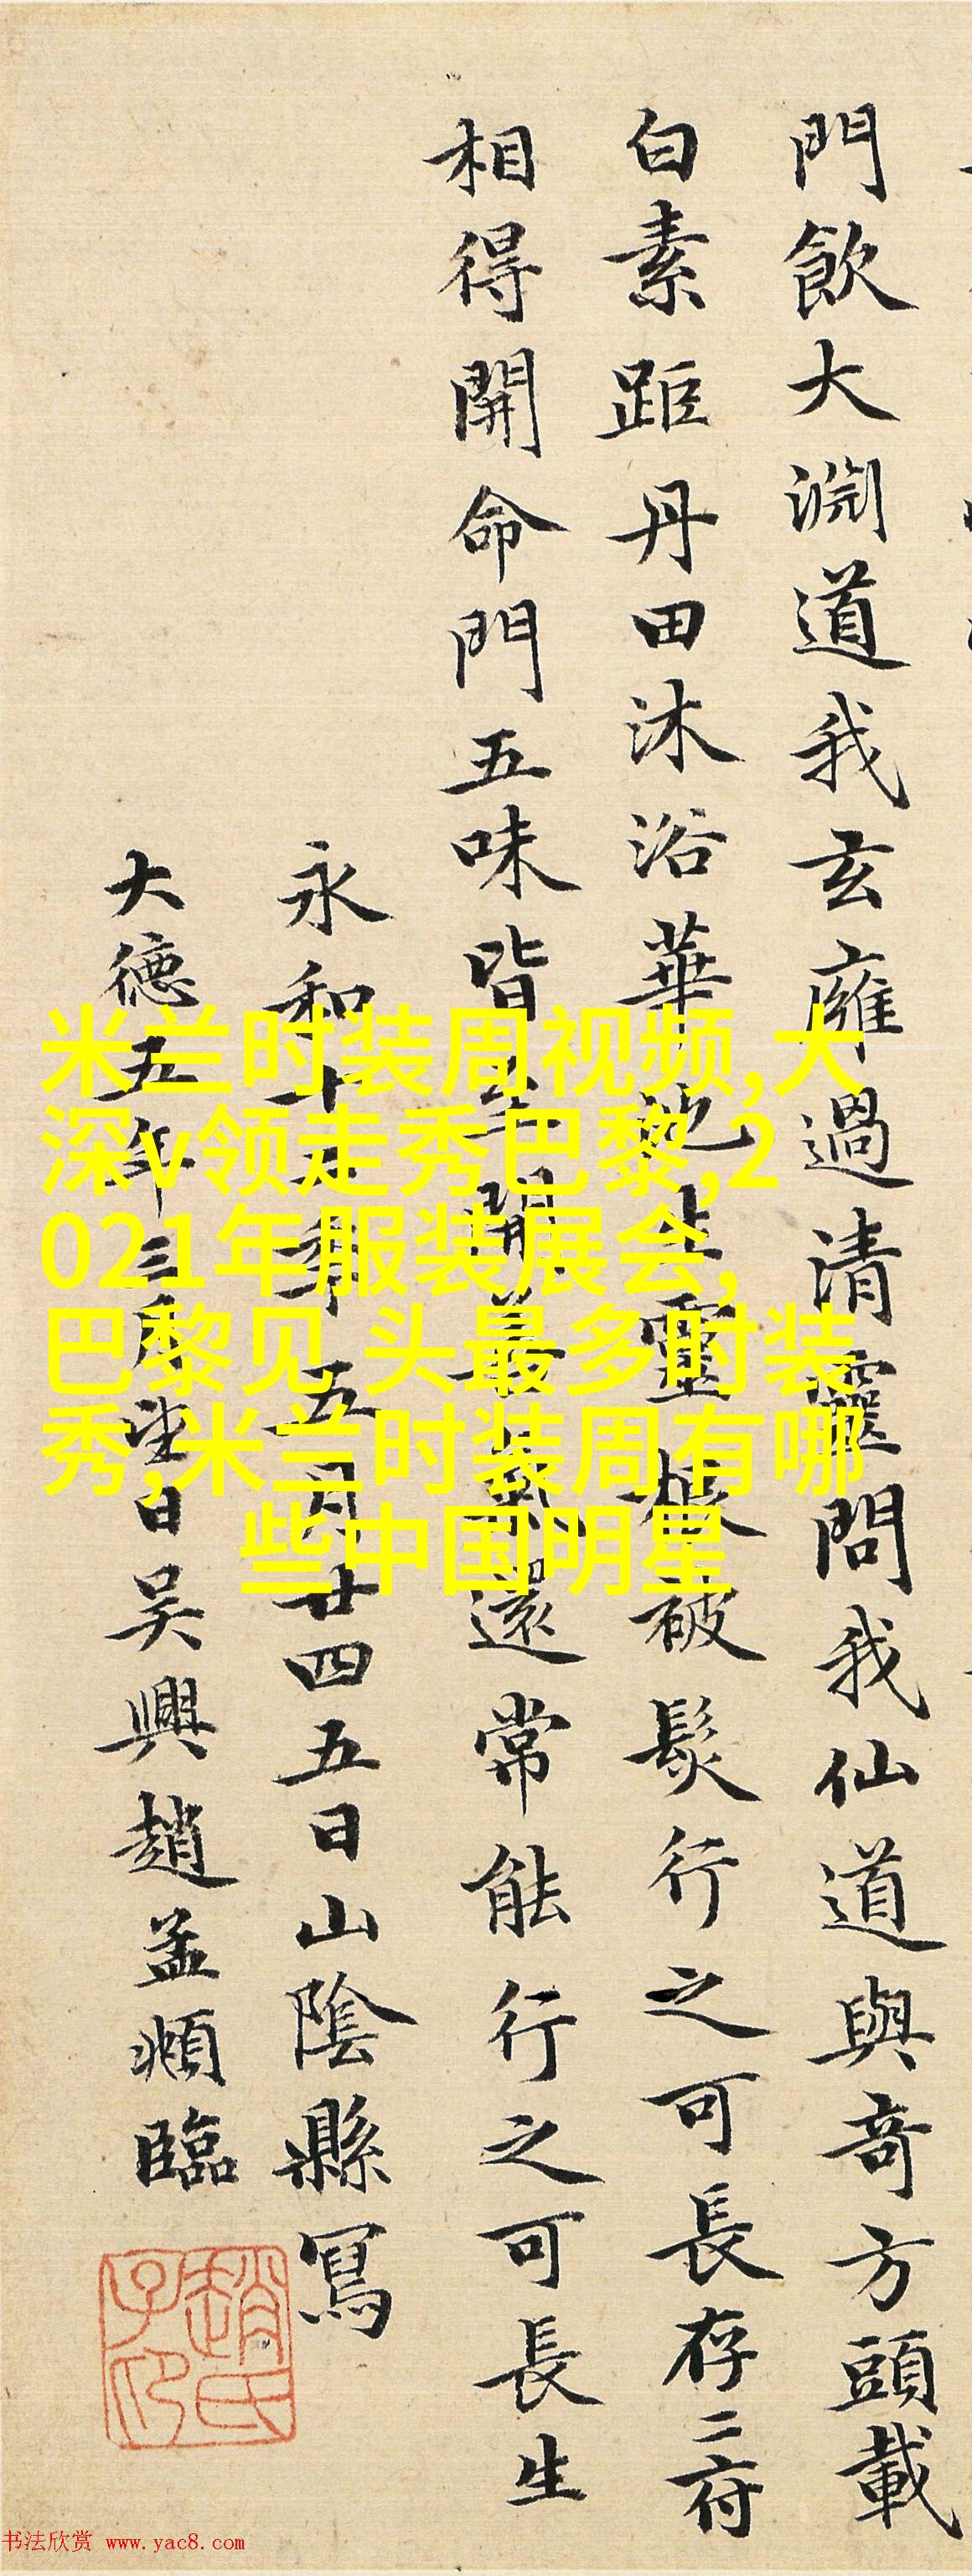 門飲大淵道我玄廱過清靈問我仙道與奇方頭載
白素距丹田沐浴華池生靈根被髮行之可長存二府
相得開命門五味皆至開善氣還常能行之可長生
永和十二年五月廿四五日山陰縣寫
大德五年三月望日吳興趙孟頫臨
趙氏
子昂
米兰时装周视频,大
深v领走秀巴黎,2
021年服装展会,
巴黎见 头最多时装
秀,米兰时装周有哪
些中国明星
书法欣赏 www.yac8.com